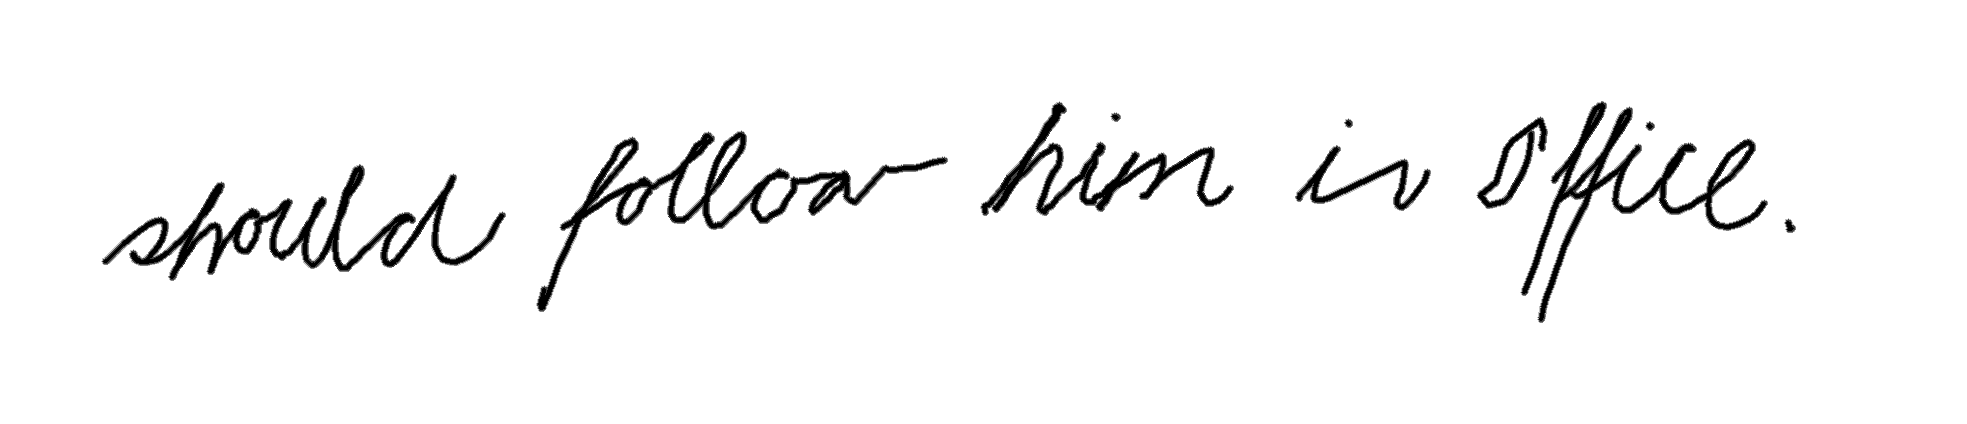 should follow him in office.